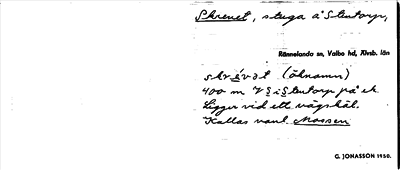 Skrevet, stuga å Stentorp,
Rännelanda sn, Valbo hd, Älvsb. län
skrévet (öknamn)
400 m V § i Stentorp på ek
Ligger vid ett vägskäl.
Kallas vanl. Mossen
G. JONASSON 1950.